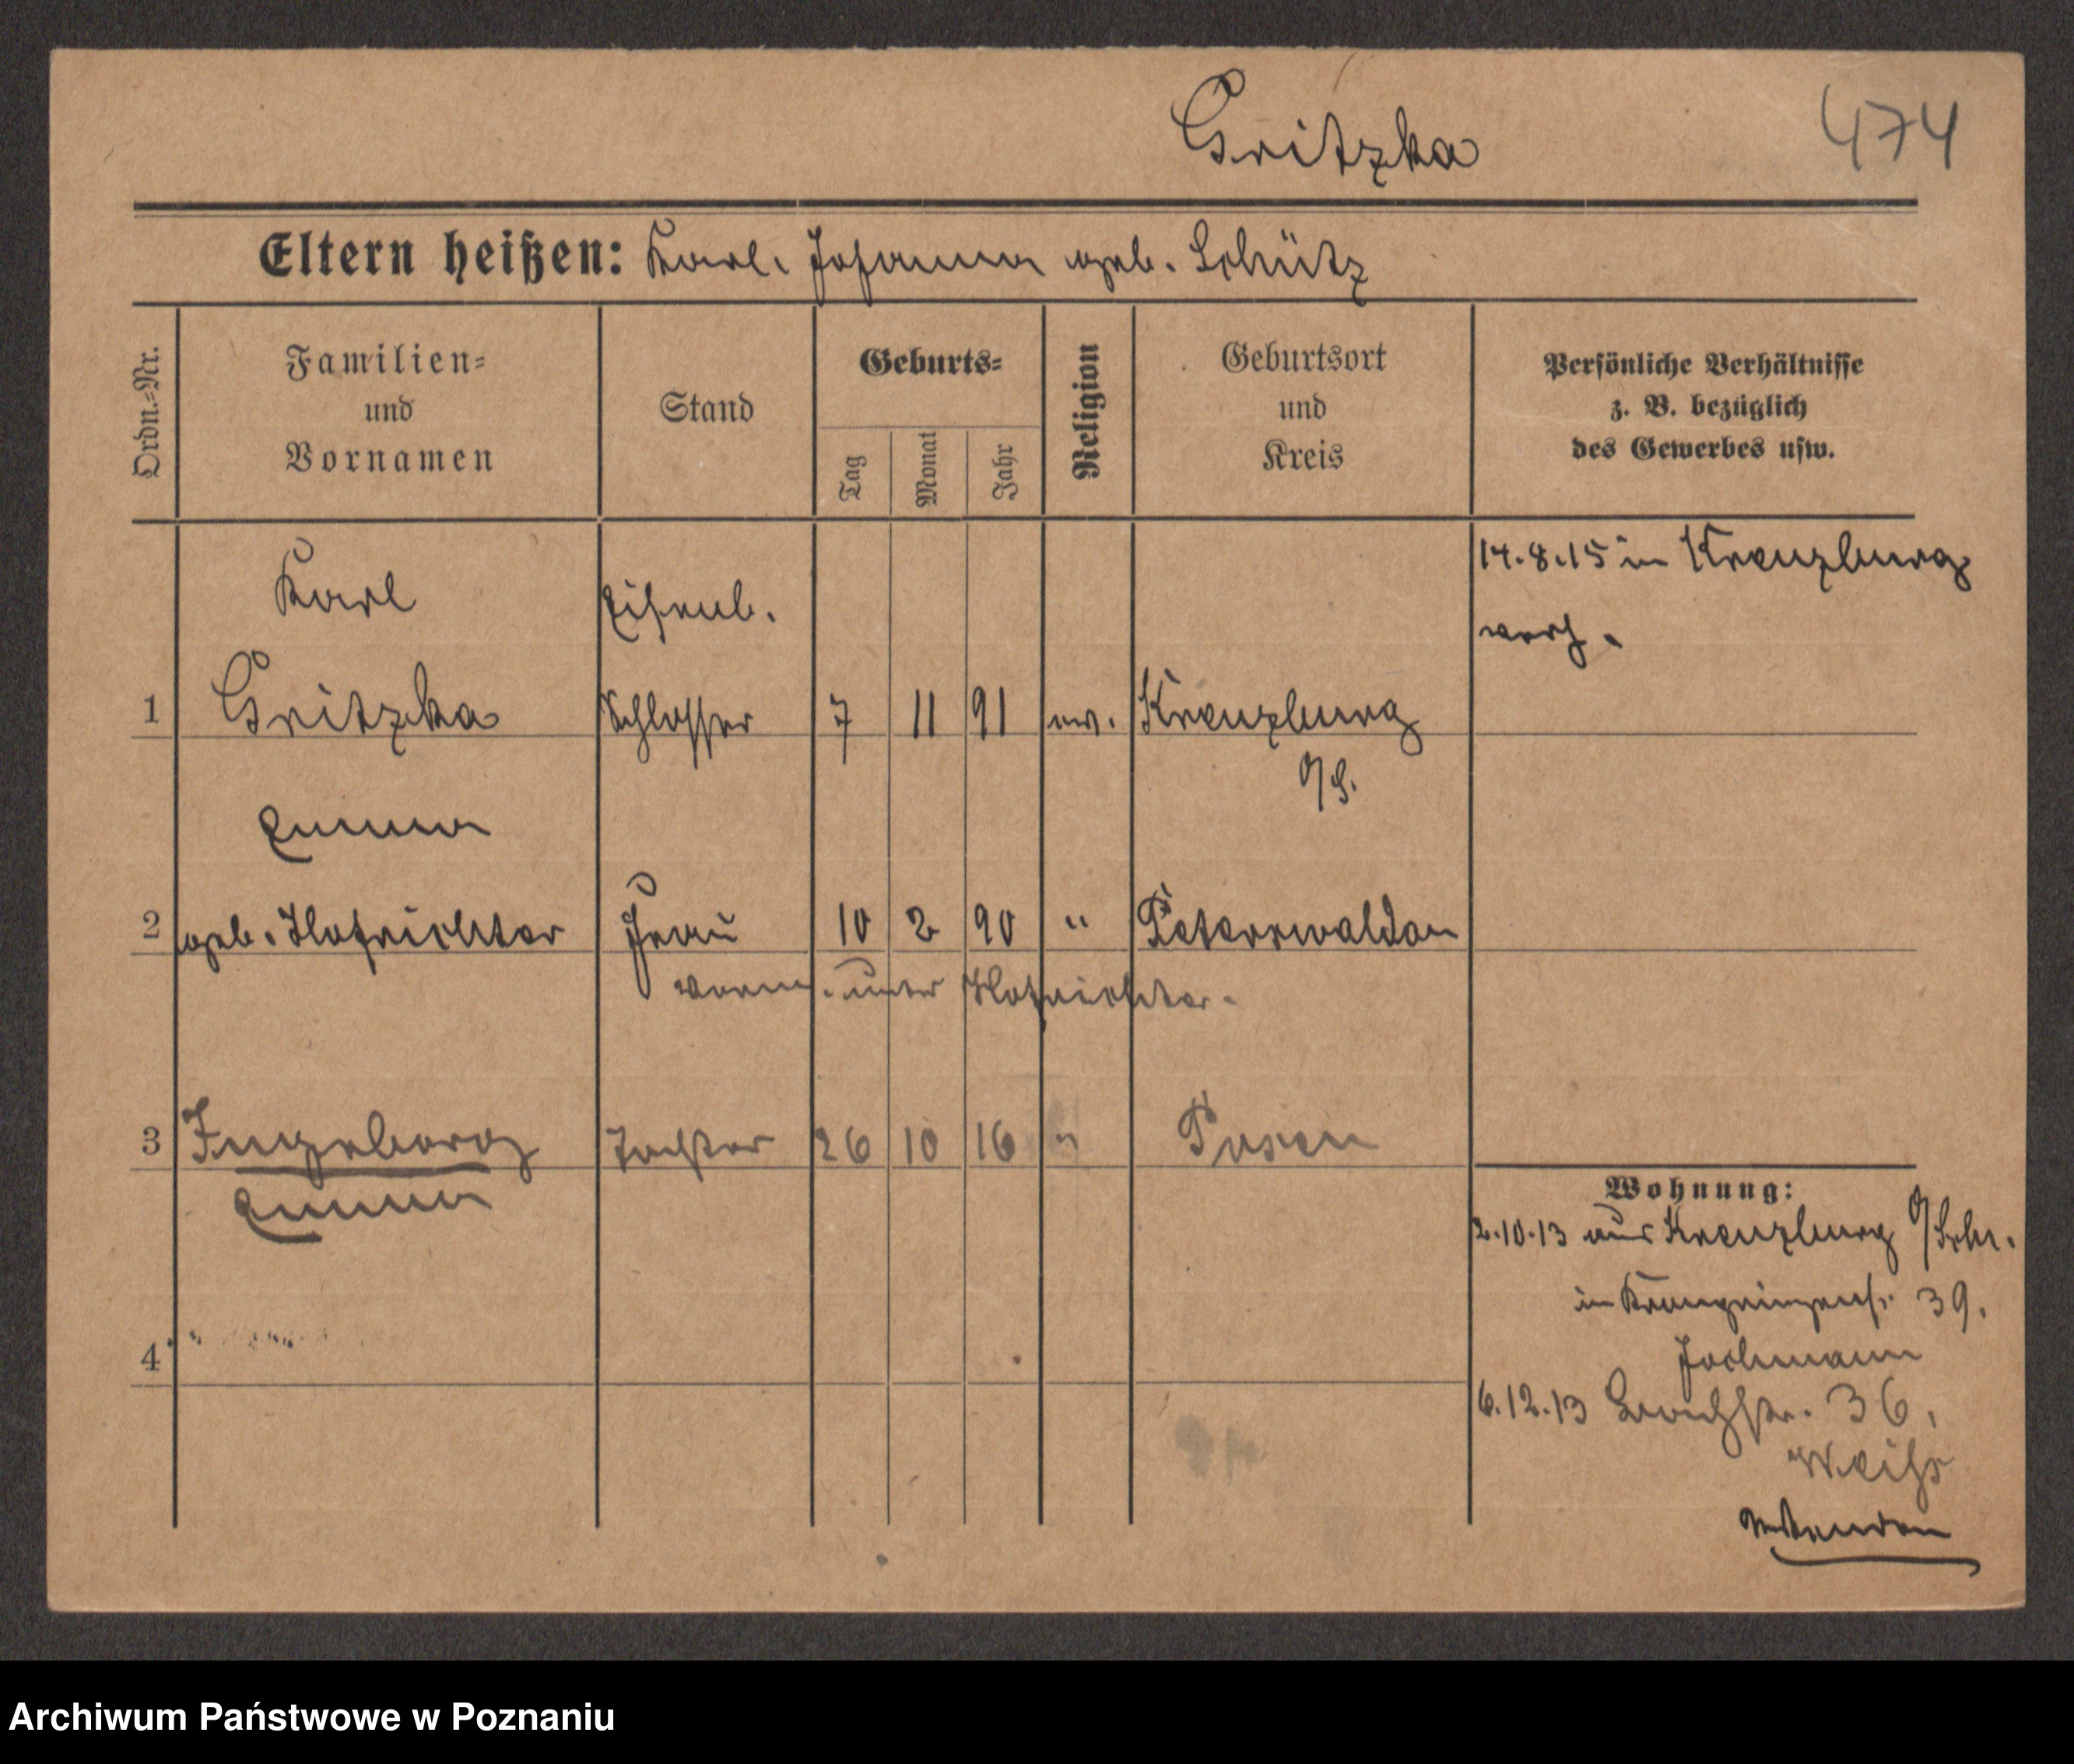 Gritzka
474
Eltern heißen: Karl. Johanna geb. Schütz
Ordn.-Nr.
Familien- und Vornamen
Stand
Geburts-
Tag
Monat
Jahr
Religion
Geburtsort und Kreis
Persönliche Verhältnisse z. B. bezüglich des Gewerbes usw.
Karl
Eisenb.
14.8.15 in Kreuzburg
verh.
1 Gritzka Schlosser 7 11 91 ev. Kreuzburg
O/S.
Emma
2 geb. Hofrichter Frau 10 2 90 " Peterswaldau
vorm. unter Hofrichter.
3 Ingeborg Tochter 26 10 16 " Posen
Emma
4
Wohnung:
2.10.13 aus Kreuzburg O/Schl.
in Kronprinzenst. 39.
Jochmann
6.12.13 Bachstr. 36,
Weiss
Archiwum Państwowe w Poznaniu